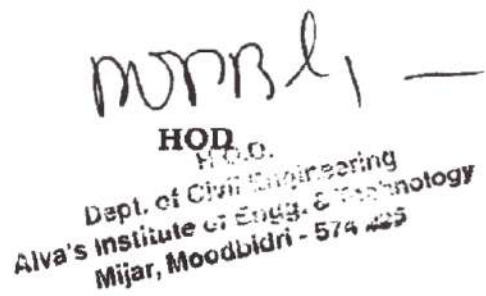 HOD
H.O.D.
Dept. of Civil Engineering
Alva's Institute of Engg. & Technology
Mijar, Moodbidri - 574 225